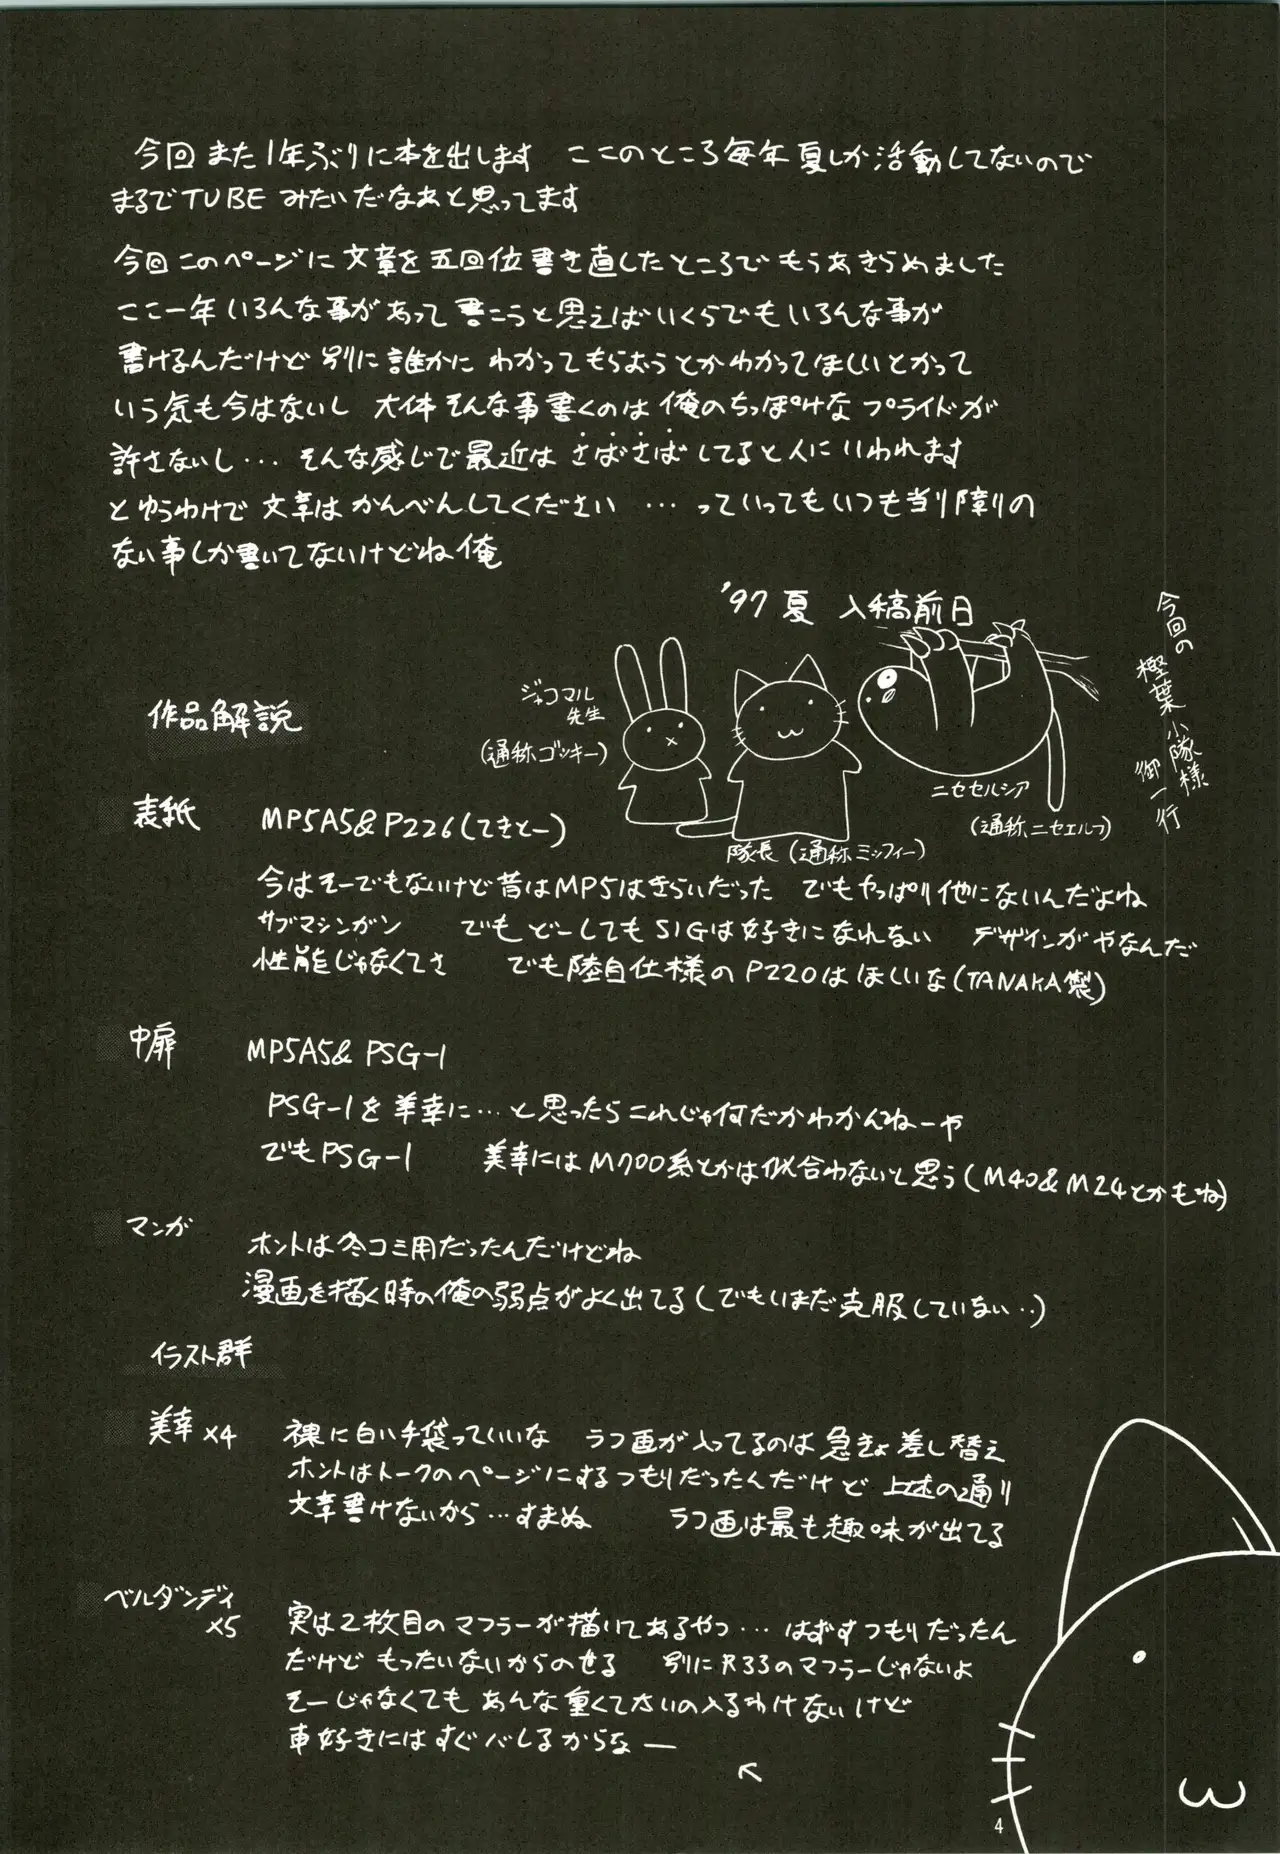 今回また1年ぶりに本を出します ここのところ毎年夏しか活動してないので
まるでTUBEみたいだなあと思ってます
今回このページに文章を五回位書き直したところでもうあきらめました
ここ一年いろんな事があって書こうと思えばいくらでもいろんな事が
書けるんだけど別に誰かにわかってもらおうとかわかってほしいとかって
いう気も今はないし 大体そんな事書くのは俺のちっぽけなプライドが
許さないし… そんな感じで最近はさばさばしてると人にいわれます
とゆうわけで文章はかんべんしてください …っていってもいつも当り障りの
ない事しか書いてないけどね俺
'97夏 入稿前日
今回の
樫葉小隊様
御一行
ジャコマル
先生
(通称ゴッキー)
隊長(通称ミッフィー)
ニセセルシア
(通称ニセエルフ)
作品解説
表紙 MP5A5&P226(てきとー)
今はそーでもないけど昔はMP5はきらいだった でもやっぱり他にないんだよね
サブマシンガン でもどーしてもSIGは好きになれない デザインがやなんだ
性能じゃなくてさ でも陸自仕様のP220はほしいな(TANAKA製)
中扉 MP5A5&PSG-1
PSG-1を美幸に…と思ったらこれじゃ何だかわかんねーや
でもPSG-1 美幸にはM700系とかは似合わないと思う(M40&M24とかもね)
マンガ ホントは冬コミ用だったんだけどね
漫画を描く時の俺の弱点がよく出てる(でもいまだ克服していない‥)
イラスト群
美幸×4 裸に白い手袋っていいな ラフ画が入ってるのは急きょ差し替え
ホントはトークのページにするつもりだったんだけど 上述の通り
文章書けないから…すまぬ ラフ画は最も趣味が出てる
ベルダンディ
×5 実は2枚目のマフラーが描いてあるやつ…はずすつもりだったん
だけど もったいないからのせる 別にR33のマフラーじゃないよ
そーじゃなくても あんな重くてださいの入るわけないけど
車好きにはすぐバレるからなー
4